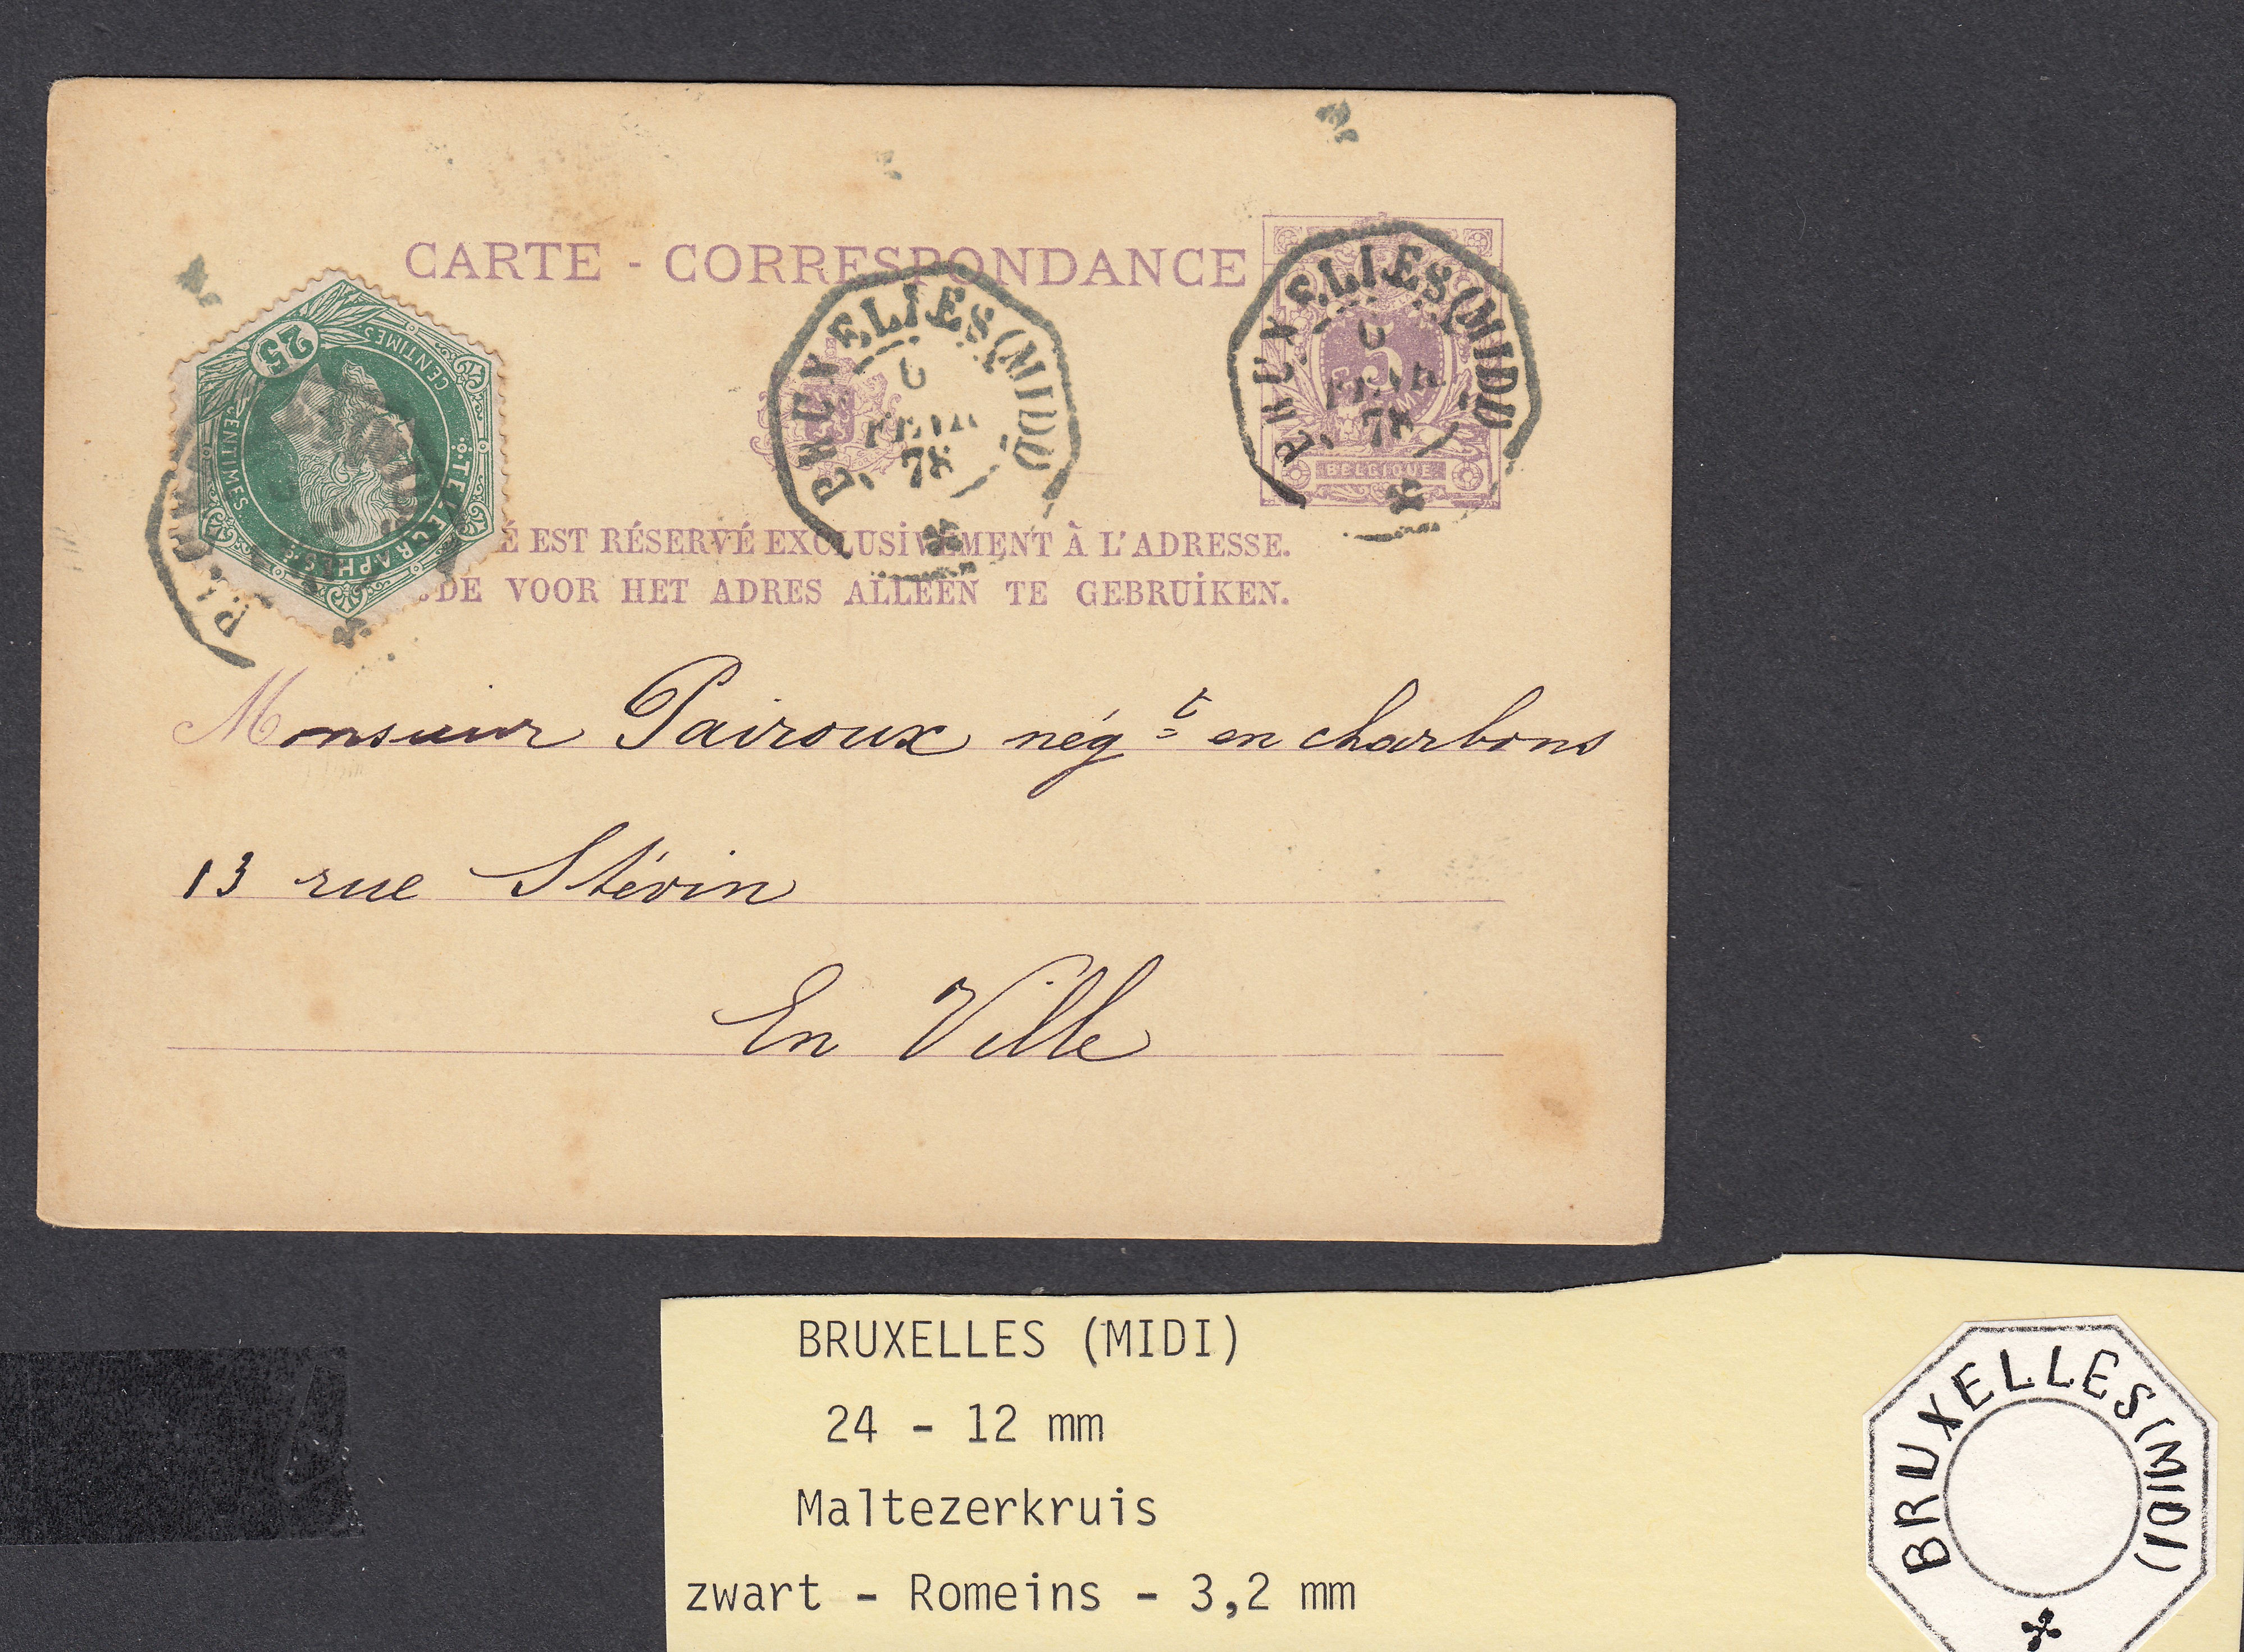 CARTE - CORRESPONDANCE
25
CENTIMES
CENTIMES
TÉLÉGRAPHES
BRUXELLES (MIDI)
FEVR
78
BRUXELLES (MIDI)
FEVR
78
5
BELGIQUE
É EST RÉSERVÉ EXCLUSIVEMENT À L'ADRESSE.
DE VOOR HET ADRES ALLEEN TE GEBRUIKEN.
Monsieur Pairoux négt en charbons
13 rue Stévin
En Ville
BRUXELLES (MIDI)
24 - 12 mm
Maltezerkruis
zwart - Romeins - 3,2 mm
BRUXELLES (MIDI)